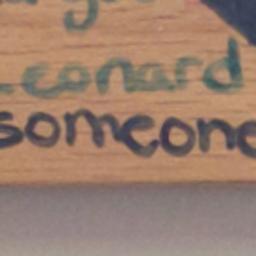 eonard
someone